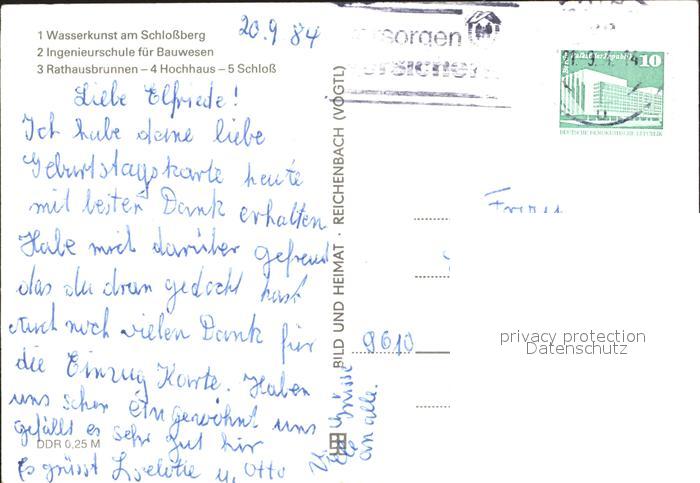 1 Wasserkunst am Schloßberg
2 Ingenieurschule für Bauwesen
3 Rathausbrunnen – 4 Hochhaus – 5 Schloß
20.9 84
Liebe Elfriede!
Ich habe deine liebe
Geburtstagskarte heute
mit besten Dank erhalten
Habe mich darüber gefreut
das du dran gedacht hast
Auch noch vielen Dank für
die Einzug Karte. Haben
uns schon eingewöhnt uns
gefällts es sehr gut hir
Es grüsst u. Otto
Grüsse
an alle.
DDR 0,25 M
BILD UND HEIMAT · REICHENBACH (VOGTL)
sorgen
10
DEUTSCHE DEMOKRATISCHE REPUBLIK
9610
privacy protection
Datenschutz